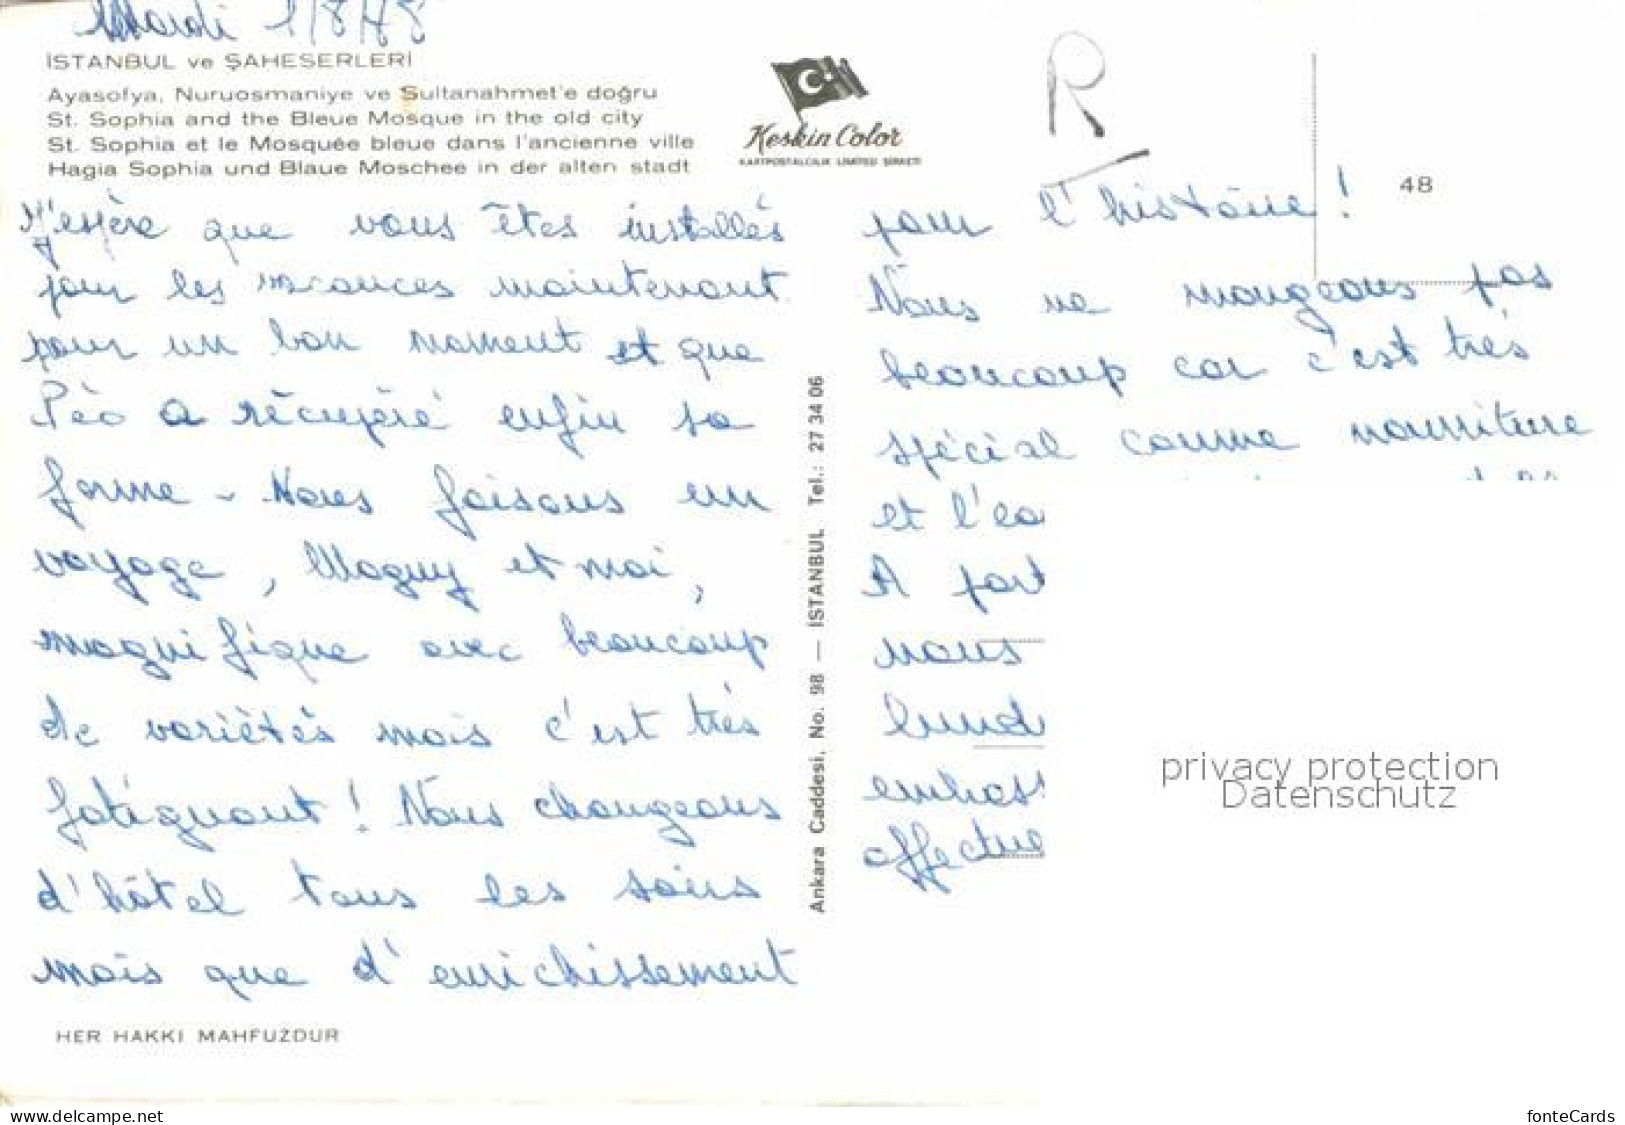 Mardi 1/8/78
İSTANBUL ve ŞAHESERLERİ
Ayasofya, Nuruosmaniye ve Sultanahmet'e doğru
St. Sophia and the Bleue Mosque in the old city
St. Sophia et le Mosquée bleue dans l'ancienne ville
Hagia Sophia und Blaue Moschee in der alten stadt
Keskin Color
KARTPOSTALCILIK LIMITED ŞIRKETI
R
48
J'espère que vous êtes installés
pour les vacances maintenant
pour un bon moment et que
Péo a récupéré enfin sa
forme - Nous faisons un
voyage, Maguy et moi,
magnifique avec beaucoup
de variétés mais c'est très
fatiguant ! Nous changeons
d'hôtel tous les soirs
mais que d'enrichissement
pour l'histoire !
Nous ne mangeons pas
beaucoup car c'est très
spécial comme nourriture
et l'ea
A part
nous
lund
embras
affectue
Ankara Caddesi, No. 98 — İSTANBUL Tel.: 27 34 06
HER HAKKI MAHFUZDUR
privacy protection
Datenschutz
www.delcampe.net
fonteCards